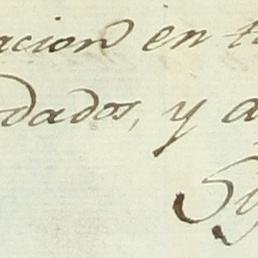 acion en t
dados, y a